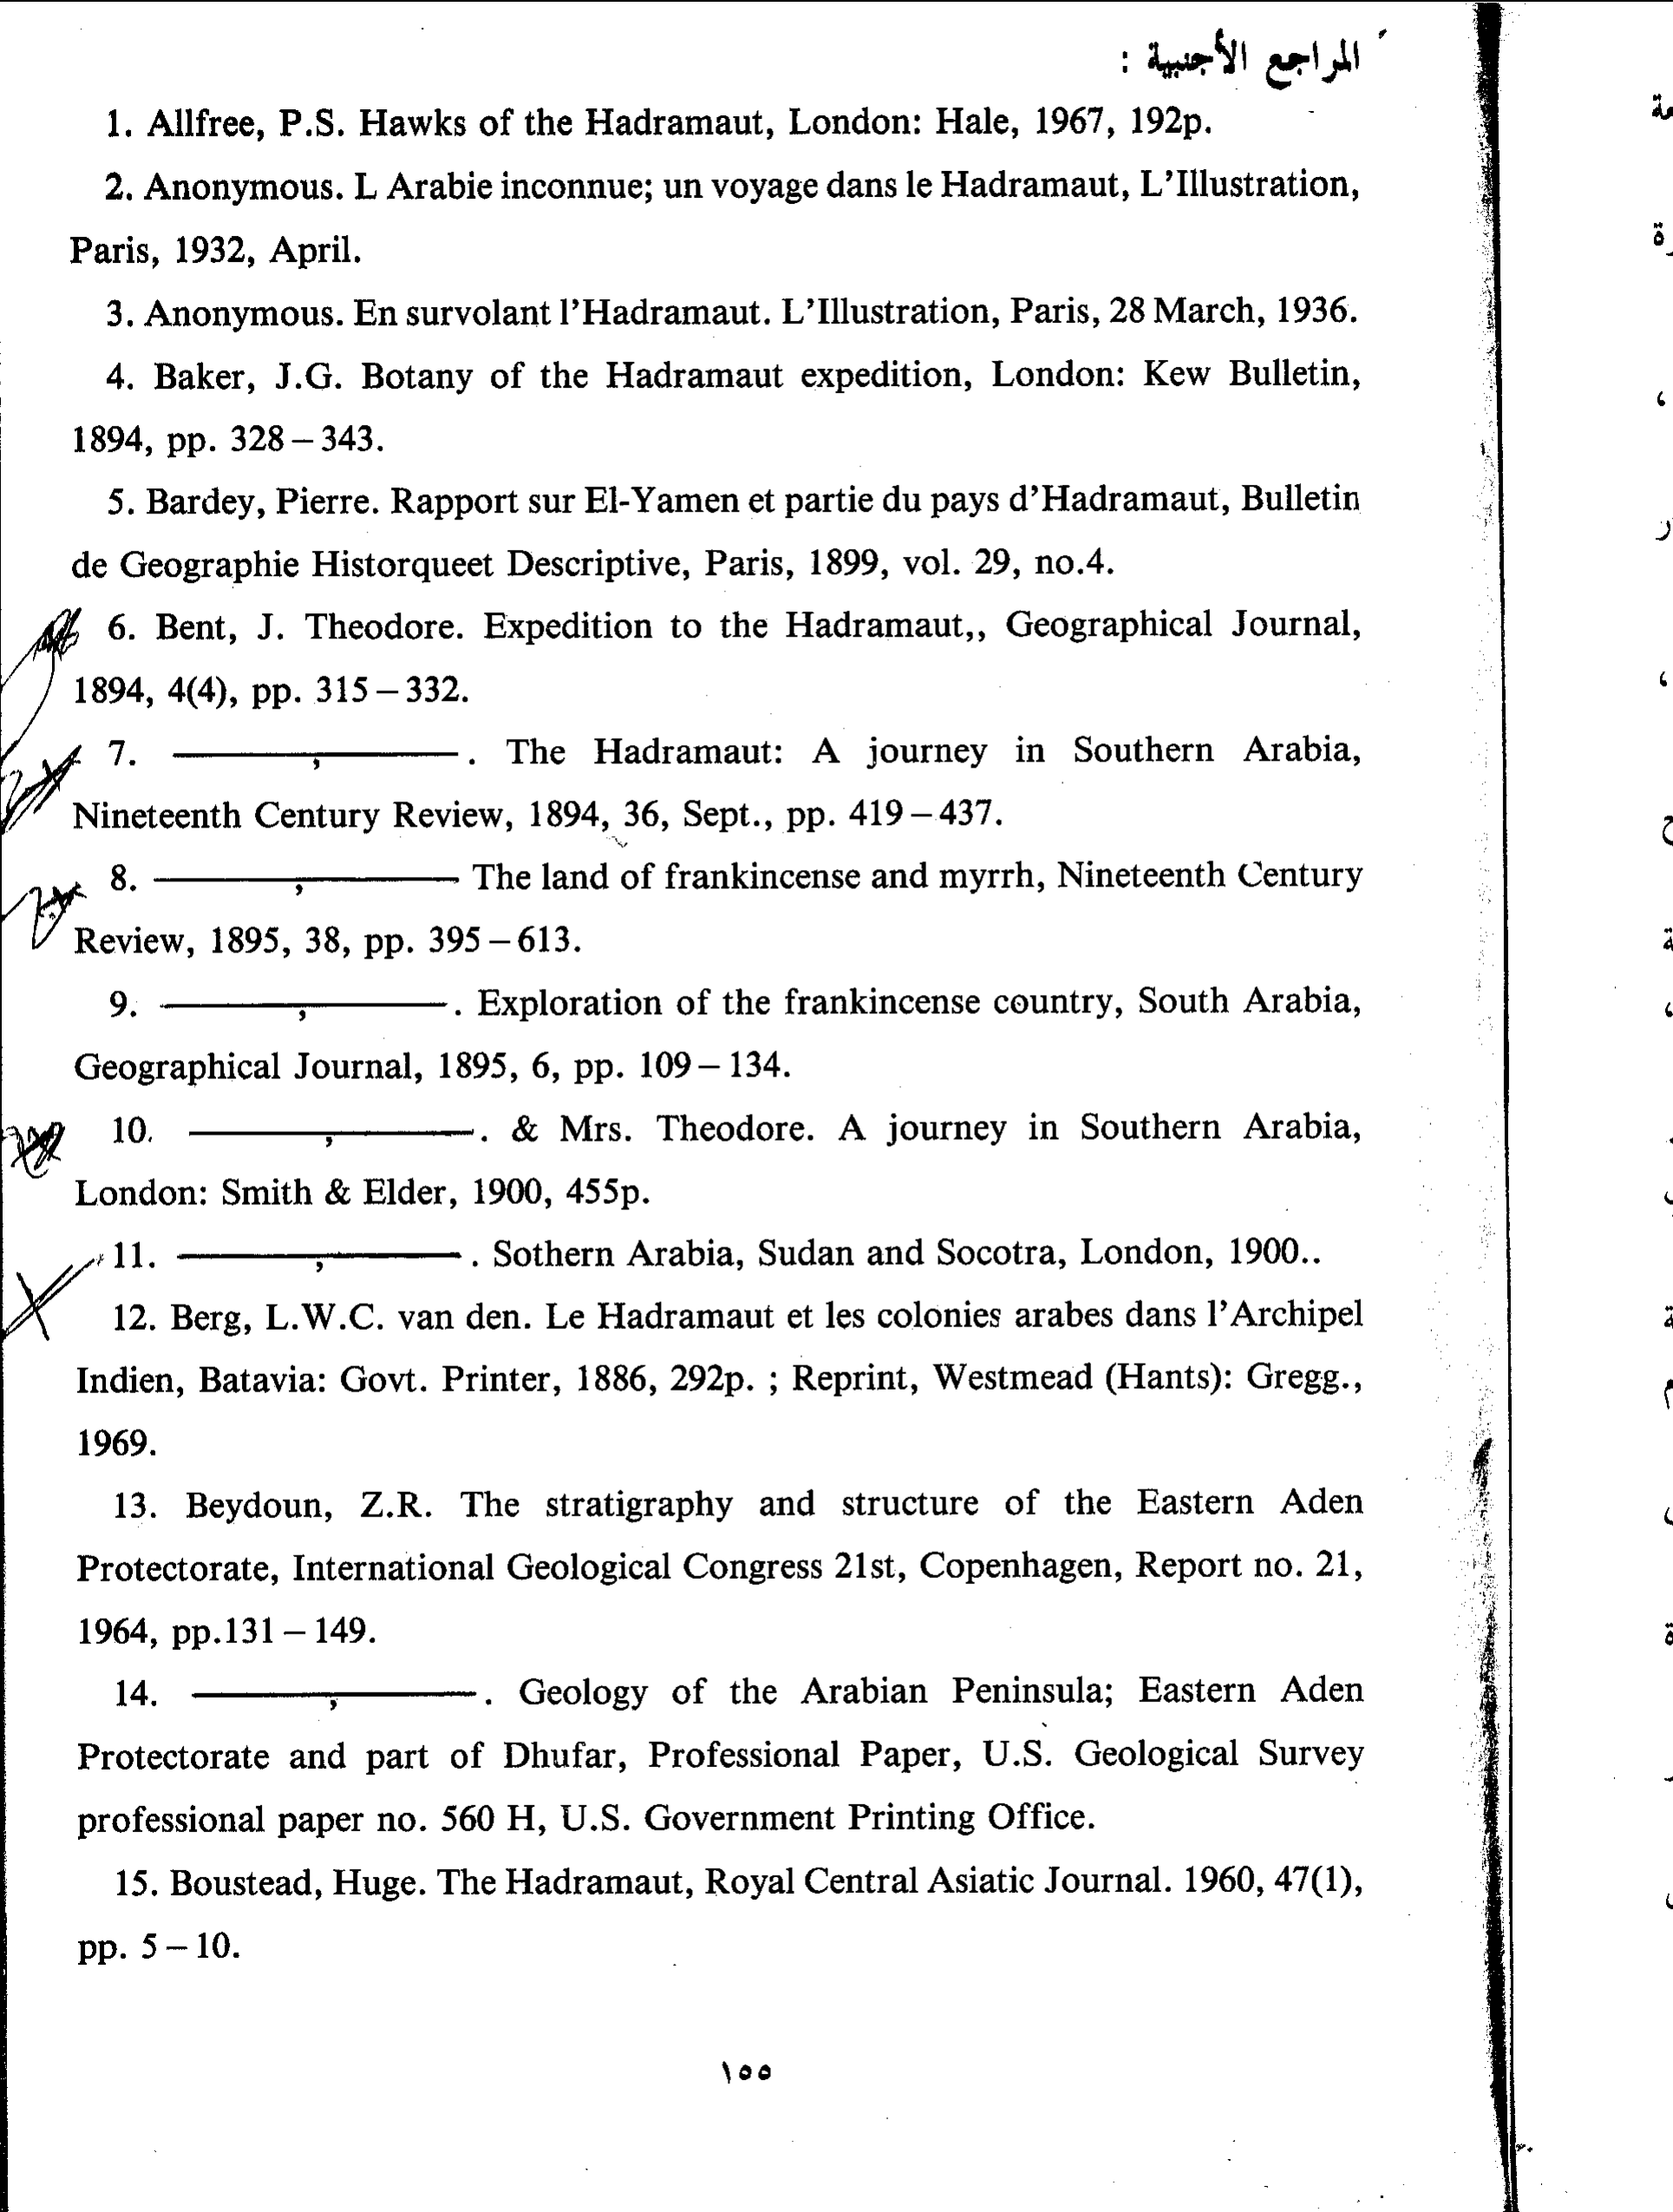 المراجع الأجنبية :
1. Allfree, P.S. Hawks of the Hadramaut, London: Hale, 1967, 192p.
2. Anonymous. L Arabie inconnue; un voyage dans le Hadramaut, L'Illustration,
Paris, 1932, April.
3. Anonymous. En survolant l'Hadramaut. L'Illustration, Paris, 28 March, 1936.
4. Baker, J.G. Botany of the Hadramaut expedition, London: Kew Bulletin,
1894, pp. 328 – 343.
5. Bardey, Pierre. Rapport sur El-Yamen et partie du pays d'Hadramaut, Bulletin
de Geographie Historqueet Descriptive, Paris, 1899, vol. 29, no.4.
6. Bent, J. Theodore. Expedition to the Hadramaut,, Geographical Journal,
1894, 4(4), pp. 315 – 332.
7. ———,———. The Hadramaut: A journey in Southern Arabia,
Nineteenth Century Review, 1894, 36, Sept., pp. 419 – 437.
8. ———,——— The land of frankincense and myrrh, Nineteenth Century
Review, 1895, 38, pp. 395 – 613.
9. ———,———. Exploration of the frankincense country, South Arabia,
Geographical Journal, 1895, 6, pp. 109 – 134.
10. ———,———. & Mrs. Theodore. A journey in Southern Arabia,
London: Smith & Elder, 1900, 455p.
11. ———,———. Sothern Arabia, Sudan and Socotra, London, 1900..
12. Berg, L.W.C. van den. Le Hadramaut et les colonies arabes dans l'Archipel
Indien, Batavia: Govt. Printer, 1886, 292p. ; Reprint, Westmead (Hants): Gregg.,
1969.
13. Beydoun, Z.R. The stratigraphy and structure of the Eastern Aden
Protectorate, International Geological Congress 21st, Copenhagen, Report no. 21,
1964, pp.131 – 149.
14. ———,———. Geology of the Arabian Peninsula; Eastern Aden
Protectorate and part of Dhufar, Professional Paper, U.S. Geological Survey
professional paper no. 560 H, U.S. Government Printing Office.
15. Boustead, Huge. The Hadramaut, Royal Central Asiatic Journal. 1960, 47(1),
pp. 5 – 10.
١٥٥